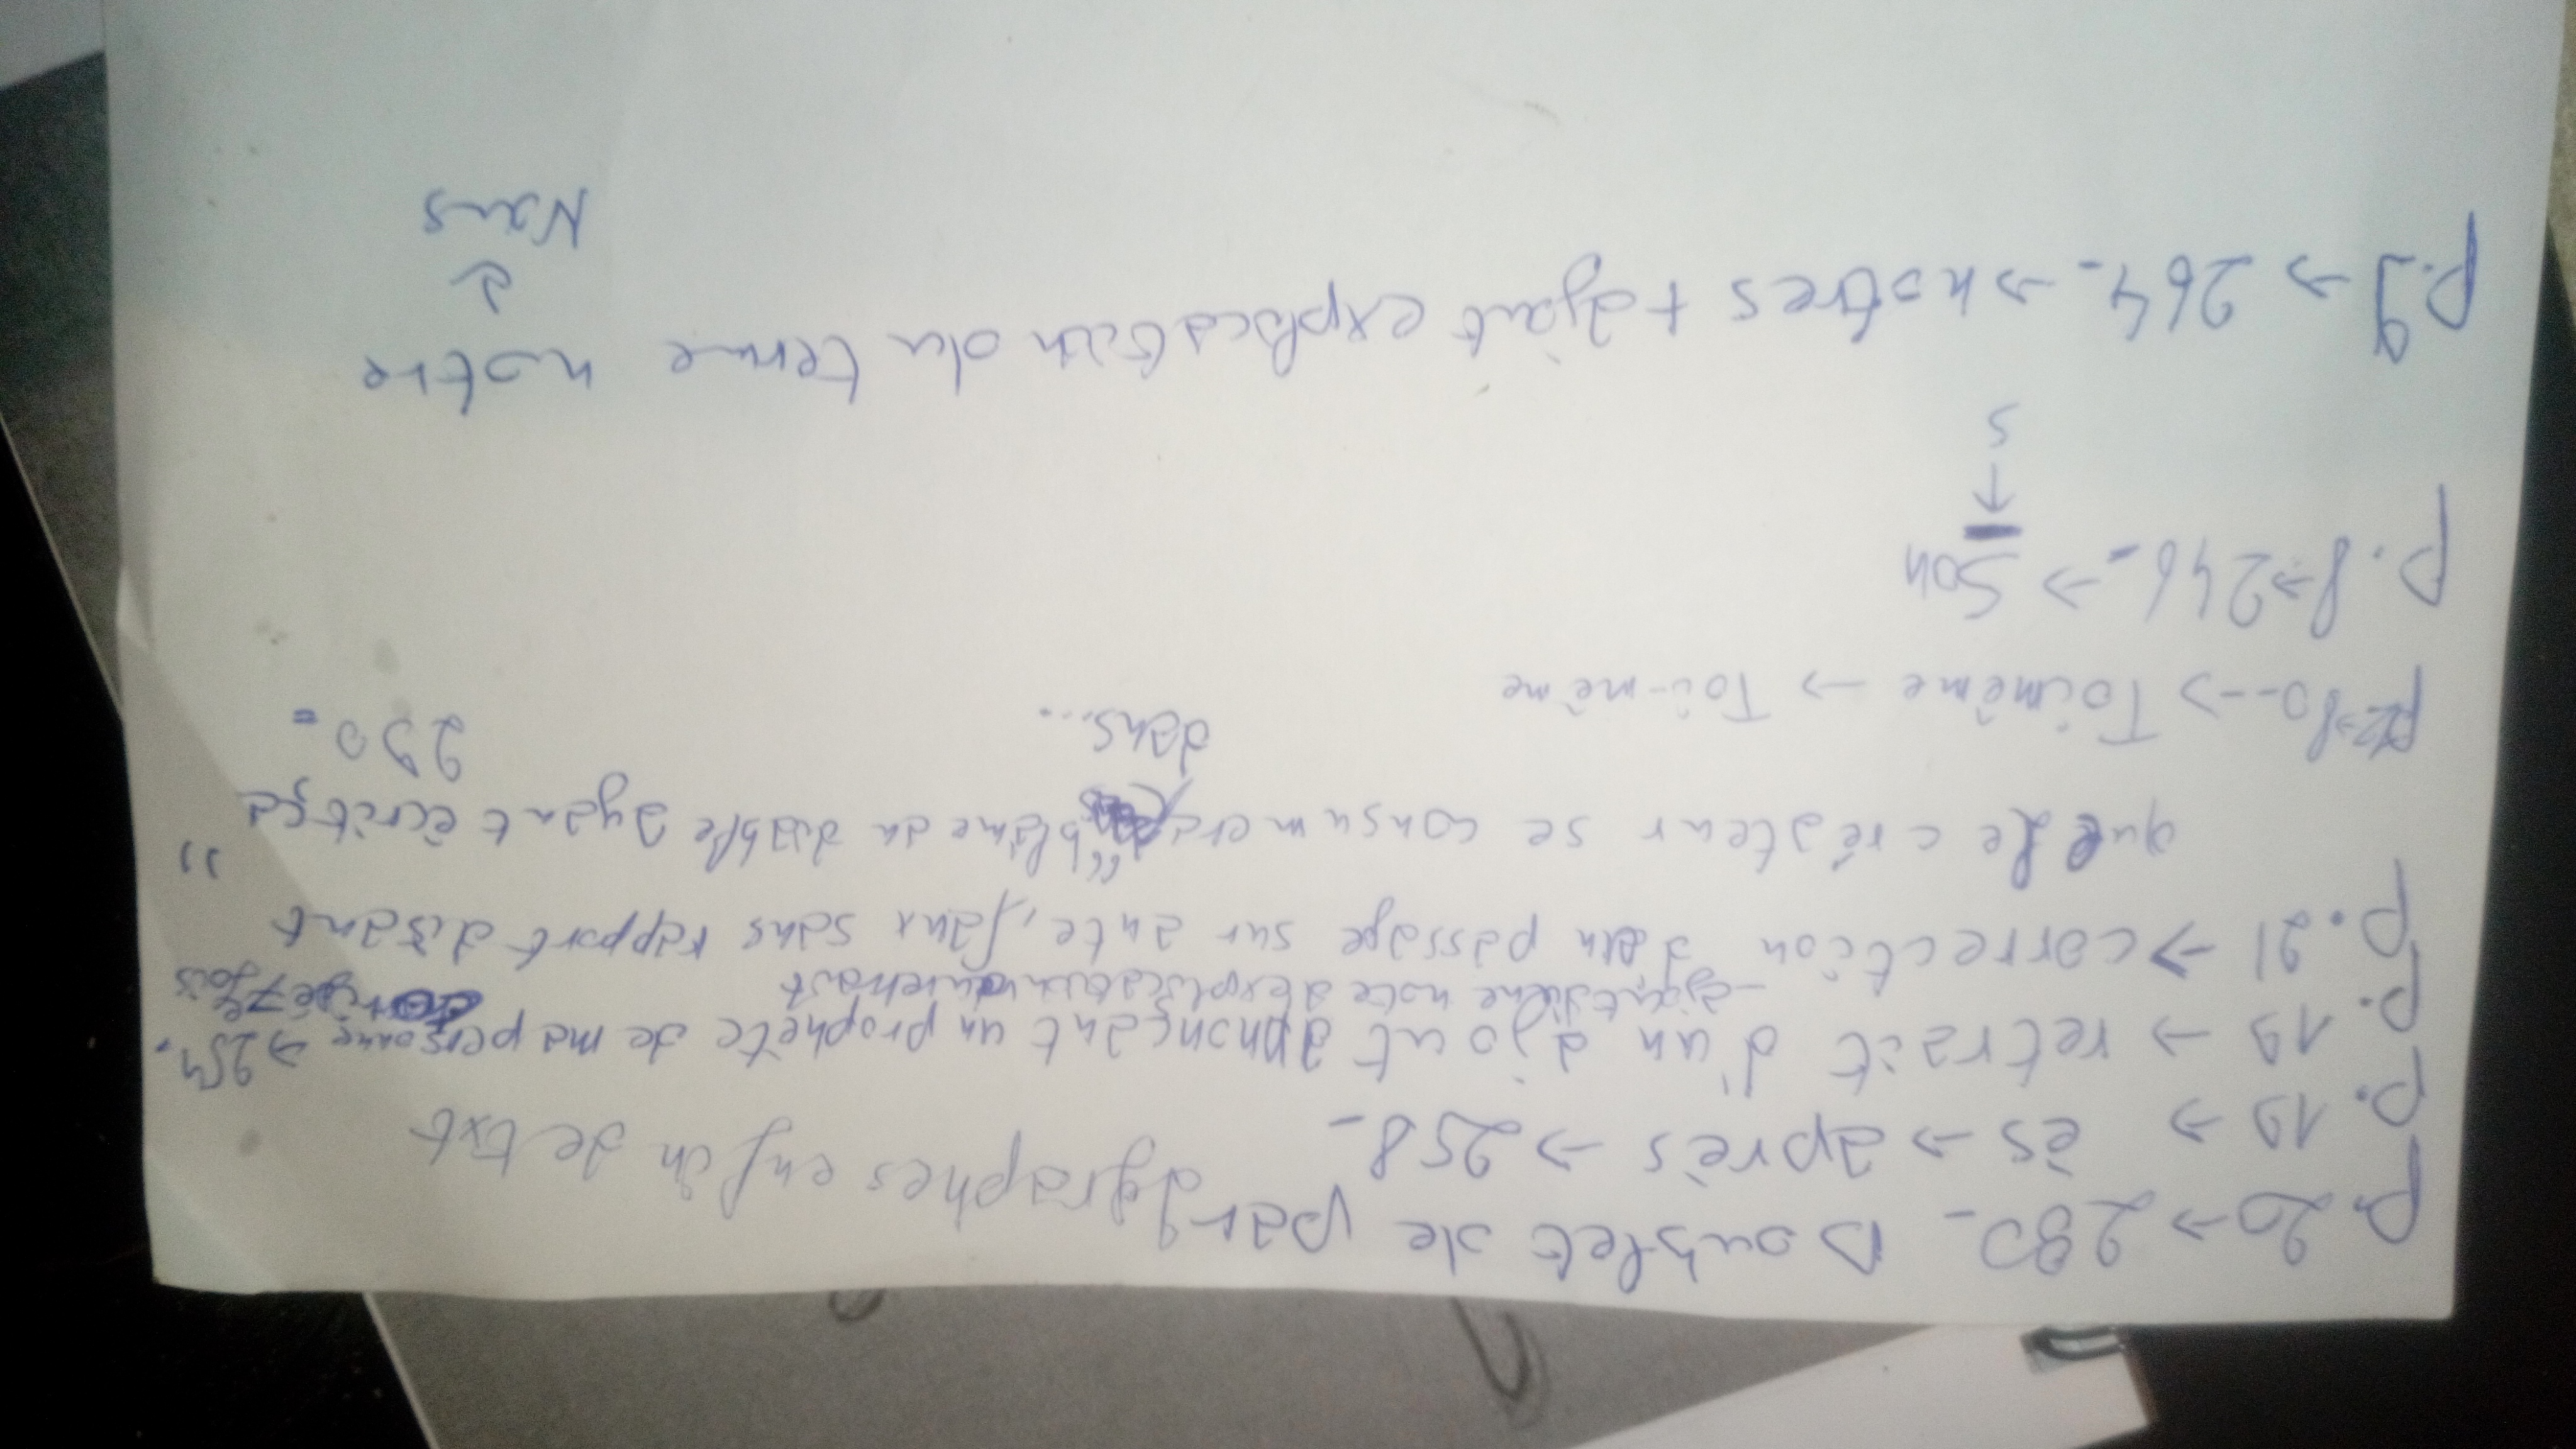 p.20 → 280_ Doublet de paragraphes en fin de txt
p.19 → ès → après → 258_
p.19 → retrait d'un ajout annonçant un prophète de ma personne → 254.
corrigé 7 fois
- ajout d'une note d'explication
p.21 → correction d'un passage sur ante, faux sans rapport disant
que le créateur se consumera "blâme du diable ayant écrit ça"
dans...
290_
p2→80_ → Toimême → Toi-même
p.8→246_ → Son
↓
s
p.9 → 264_ → nôtres + ajout explication du terme notre
↓
Nous